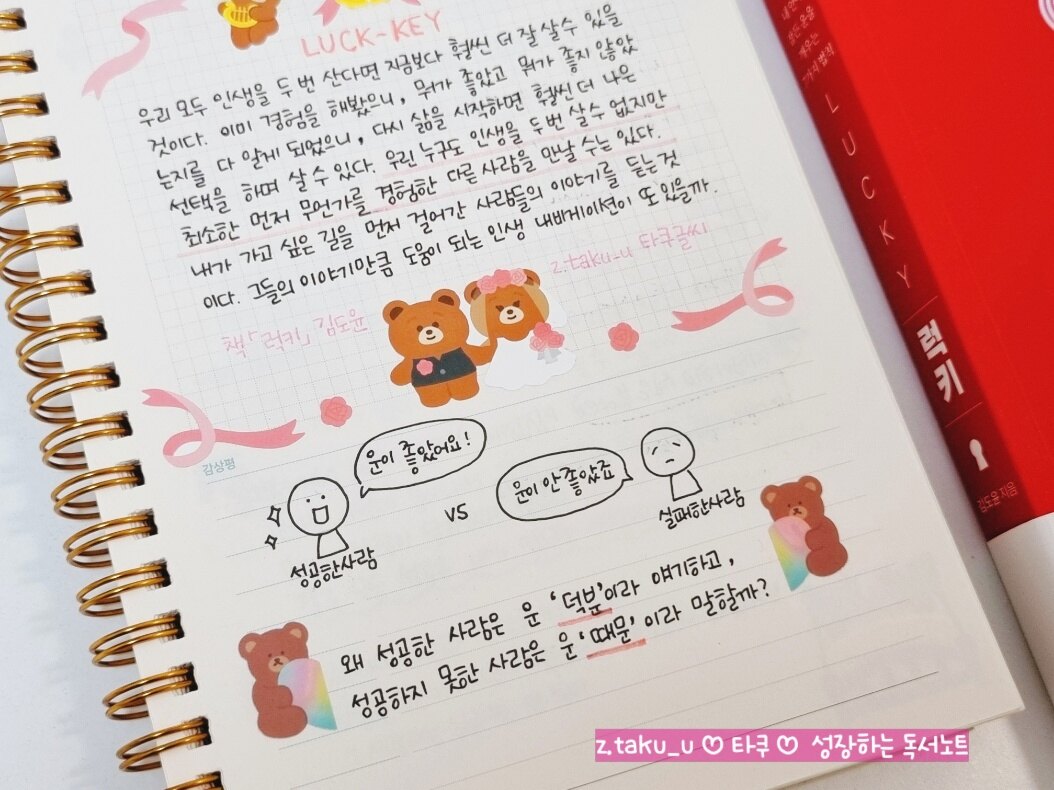 LUCK-KEY
우리 모두 인생을 두 번 산다면 지금보다 훨씬 더 잘 살 수 있을
것이다. 이미 경험을 해봤으니, 뭐가 좋았고 뭐가 좋지 않았
는지를 다 알게 되었으니, 다시 삶을 시작하면 훨씬 더 나은
선택을 하며 살 수 있다. 우린 누구도 인생을 두 번 살 수 없지만
최소한 먼저 무언가를 경험한 다른 사람을 만날 수는 있다.
내가 가고 싶은 길을 먼저 걸어간 사람들의 이야기를 듣는 것
이다. 그들의 이야기만큼 도움이 되는 인생 내비게이션이 또 있을까.
z.taku_u 타쿠글씨
책 「럭키」 김도윤
감상평
운이 좋았어요!
성공한사람
vs
운이 안 좋았죠
실패한사람
왜 성공한 사람은 운 '덕분'이라 얘기하고,
성공하지 못한 사람은 운 '때문' 이라 말할까?
LUCKY
럭키
김도윤 지음
z.taku_u ♡ 타쿠 ♡ 성장하는 독서노트